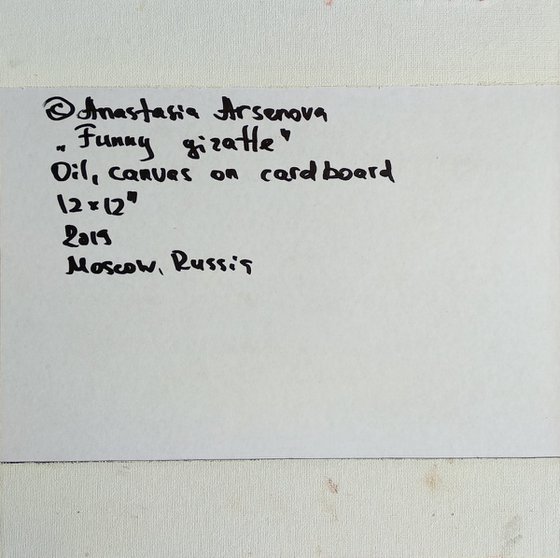 © Anastasia Arsenova
„Funny giraffe"
Oil, canvas on cardboard
12×12"
2019
Moscow, Russia